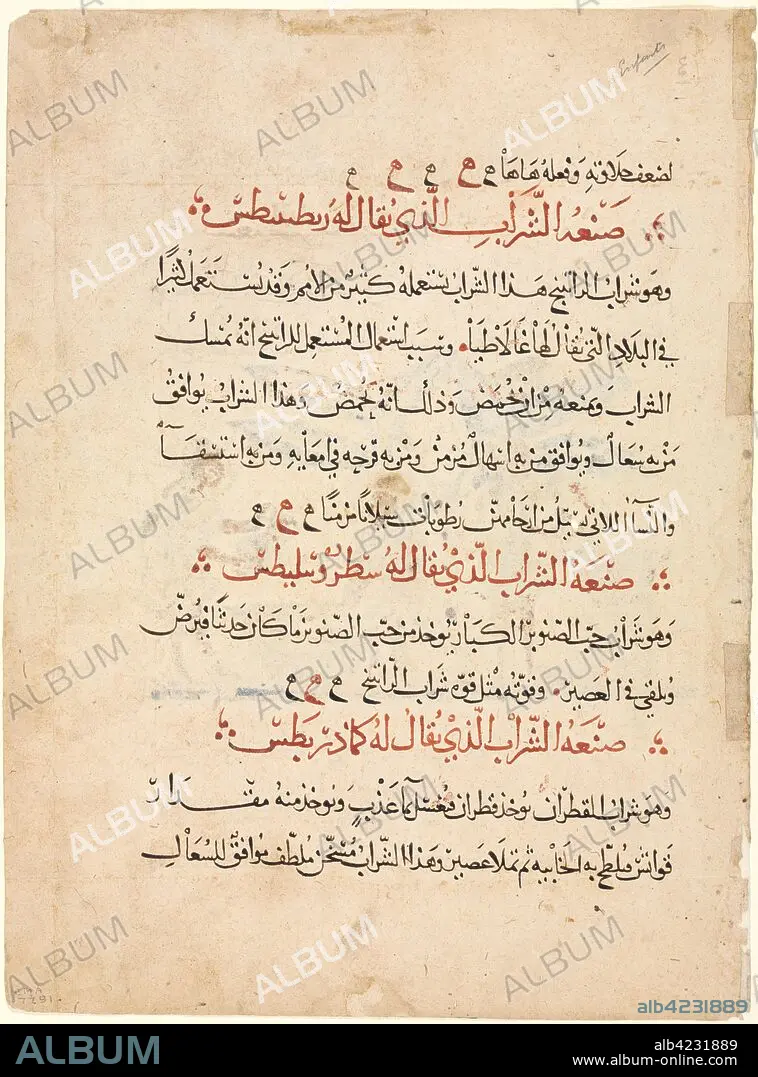 Enfants
لضعف حلاوته وفعله هاها ح ح ح ح ح ح
صنعه الشراب الذي يقال له ريطينيطس
وهو شراب الراتينج هذا الشراب يستعمله كثير من الامم وقد يستعمل كثيرا
في البلاد التي يقال لها غالاطيا وسبب استعمال المستعمل للراتينج انه يمسك
الشراب ويمنعه من ان يحمض وذلك انه يحمض وهذا الشراب يوافق
من به سعال ويوافق من به اسهال مزمن ومن به قرحه في امعايه ومن به استسقآ
والنسآ اللاتي يسيل من ارحامهن رطوبات سيلانا مزمنا ح ح ح
صنعه الشراب الذي يقال له سطروبيليطس
وهو شراب حب الصنوبر الكبار يوخذ من حب الصنوبر ما كان حديثا فيرض
ويلقي في العصير وقوته مثل قوه شراب الراتينج ح ح ح
صنعه الشراب الذي يقال له كادريطس
وهو شراب القطران يوخذ قطران فيغسل بمآ عذب ويوخذ منه مقدار
قواتس فيلطخ به الخابيه ثم تملا عصير وهذا الشراب مسخن ملطف موافق للسعال
ALBUM
alb4231889
ALBUM
alb4231889
www.album-online.com